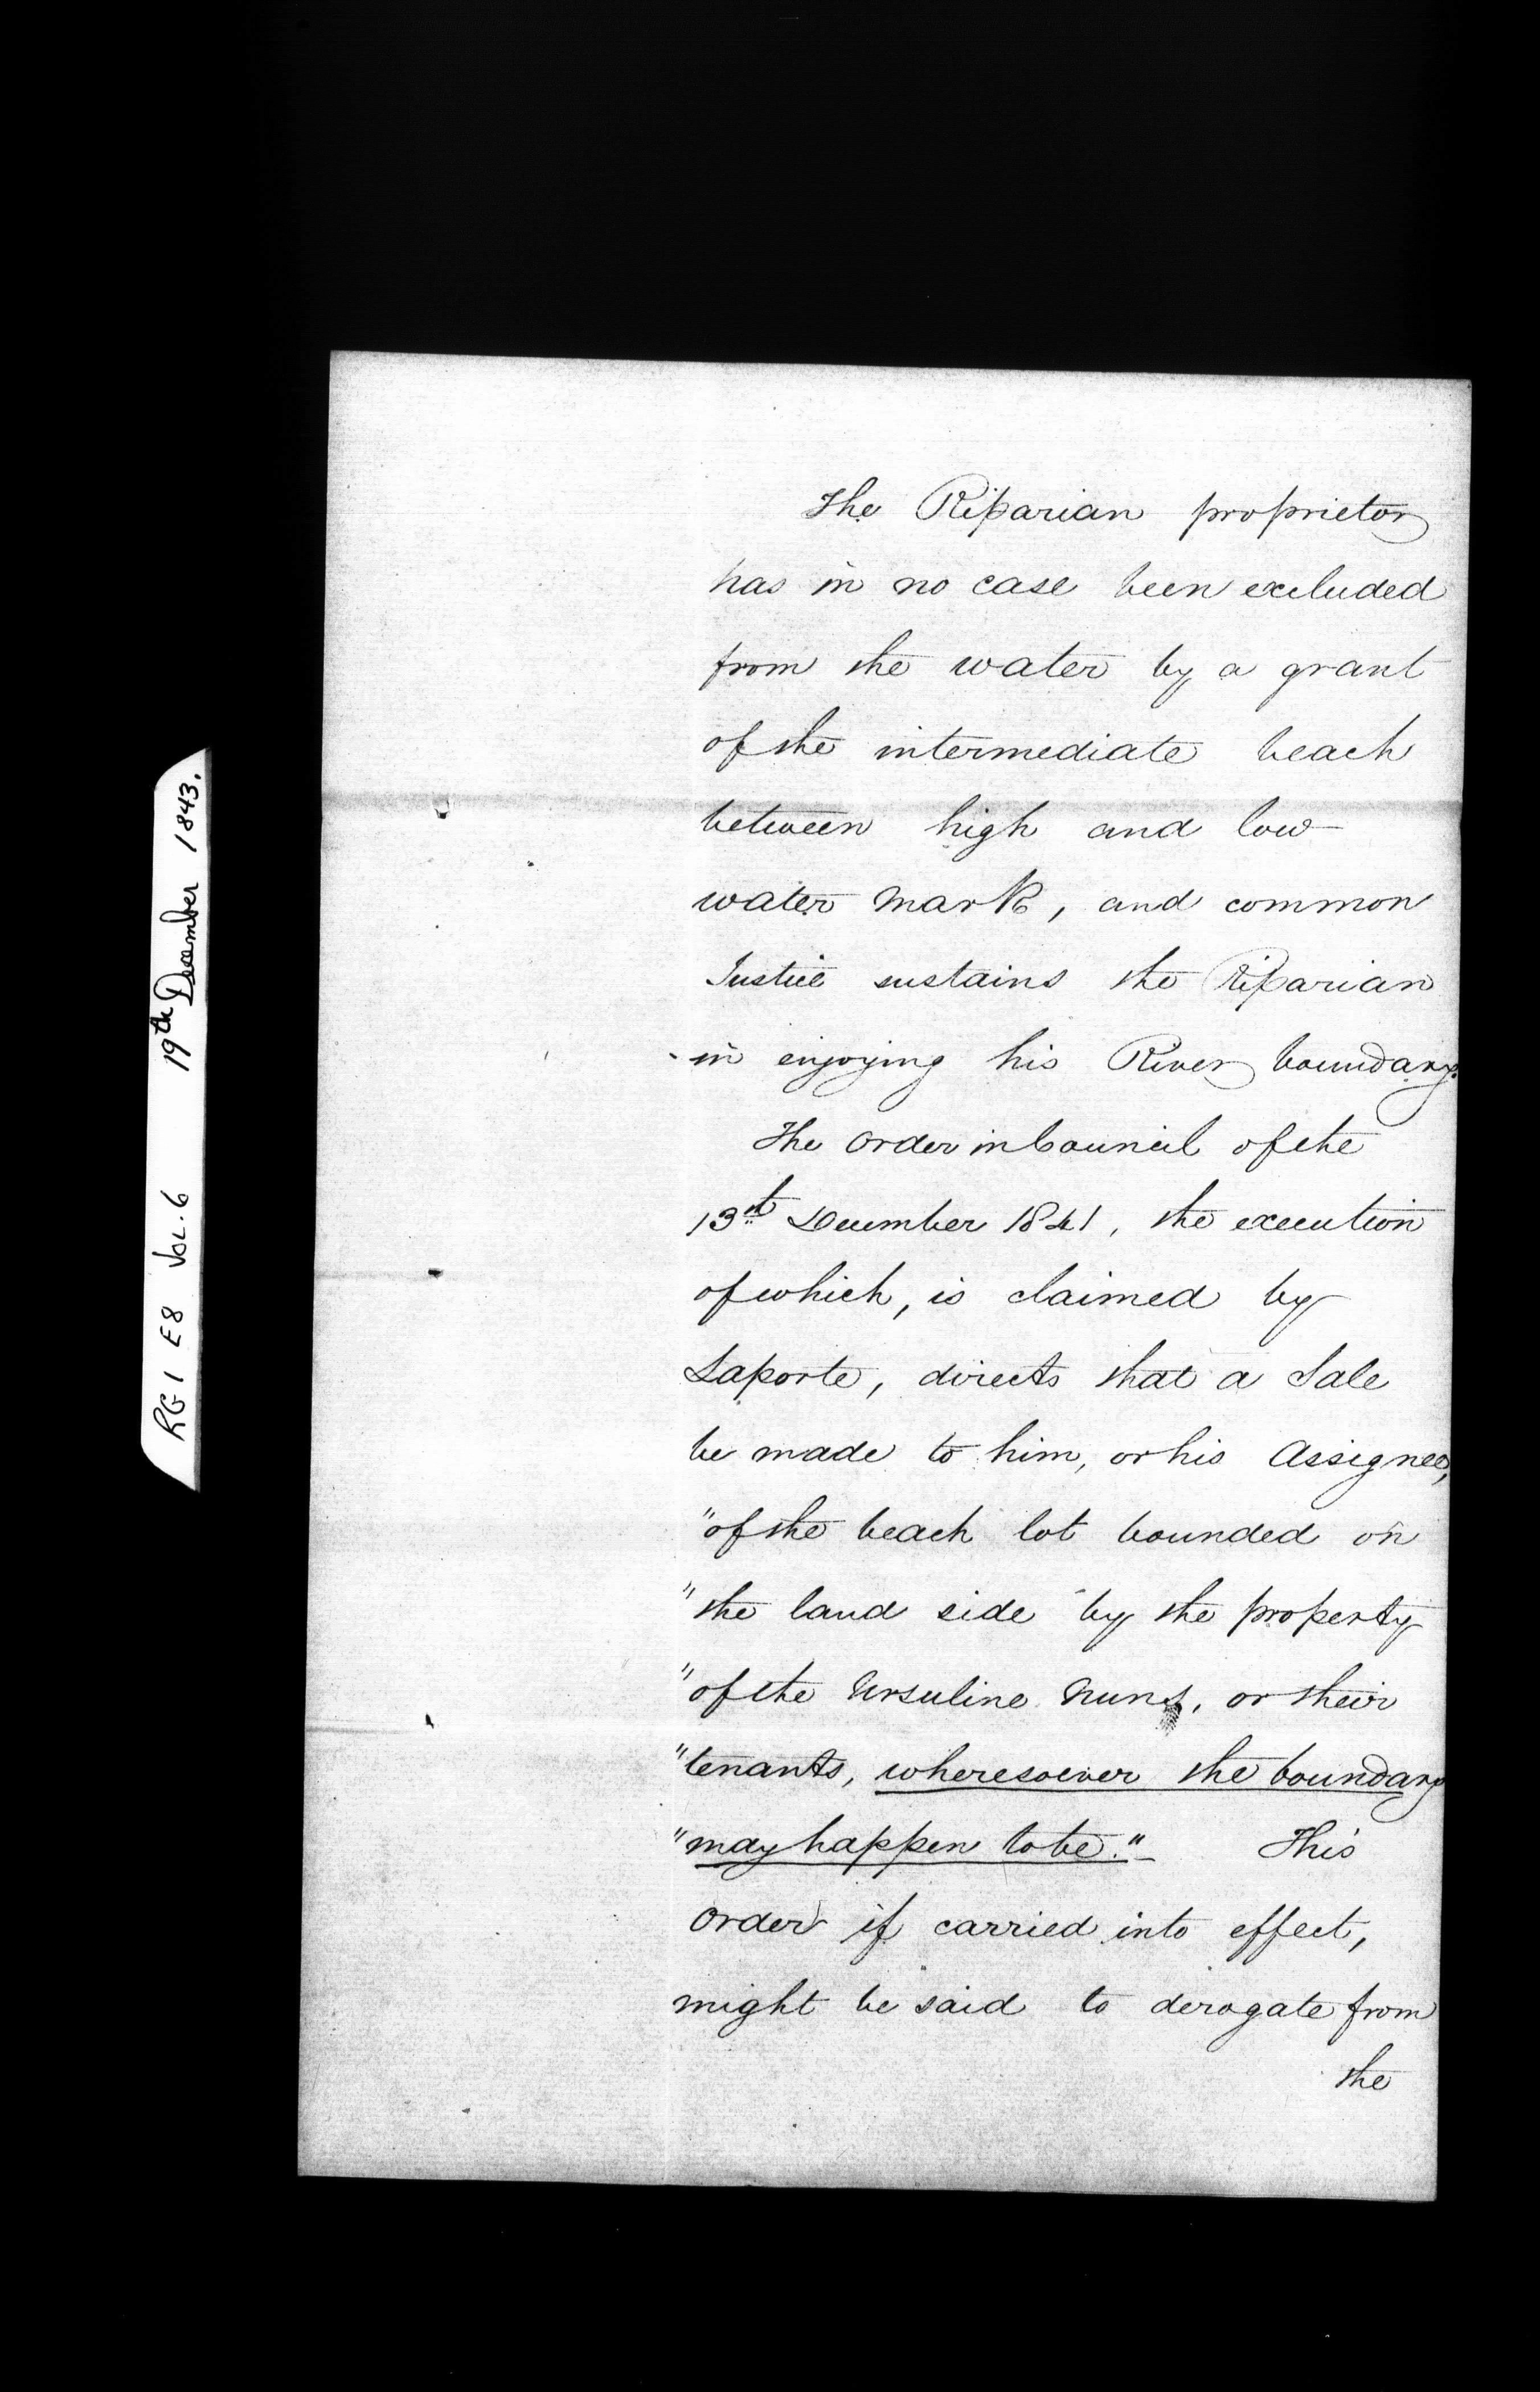 The Riparian proprietor
has in no case been excluded
from the water by a grant
of the intermediate beach
between high and low
water mark, and common
Justice sustains the Riparian
in enjoying his River boundary.
The Order in Council of the
13th December 1841, the execution
of which, is claimed by
Laporte, directs that a Sale
be made to him, or his Assignee,
"of the beach lot bounded on
"the land side by the property
"of the Ursuline Nuns, or their
"tenants, wheresoever the boundary
"may happen to be." This
Order if carried into effect,
might be said to derogate from
the
RG1 E8 Vol. 6 19th December 1843.